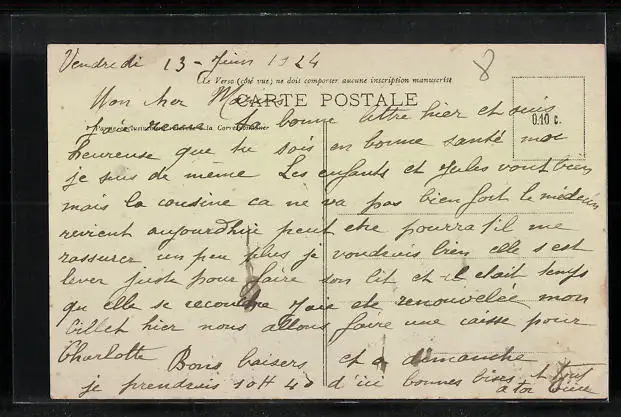 Vendredi 13 - Juin 1924
8
Le Verso (côté vue) ne doit comporter aucune inscription manuscrite
Mon cher
CARTE POSTALE
0.10 c.
ta bonne lettre hier et suis
la Correspondance
heureuse que tu sois en bonne santé moi
je suis de même Les enfants et Jules vont bien
mais la cousine ca ne va pas bien fort le médecin
revient aujourdhui peut etre pourra t il me
rassurer un peu plus je voudrais bien elle s est
lever juste pour faire son lit et il etait temps
qu elle se recouche J'aie ete renouvelée mon
billet hier nous allons faire une caisse pour
Charlotte Bons baisers et a dimanche
je prendrais 10H 40 d'ici bonnes bises et tout
a toi